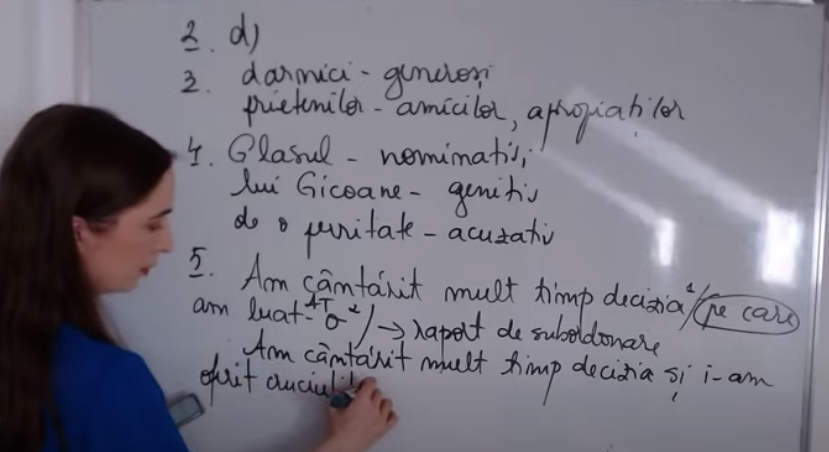 2. d)
3. darnici - generoși
prietenilor - amicilor, apropiaților
4. Glasul - nominativ;
lui Gicoane - genitiv
de o puritate - acuzativ
5. Am cântărit mult timp decizia¹/pe care
am luat-o²/ AT → raport de subordonare
Am cântărit mult timp decizia și i-am
oprit